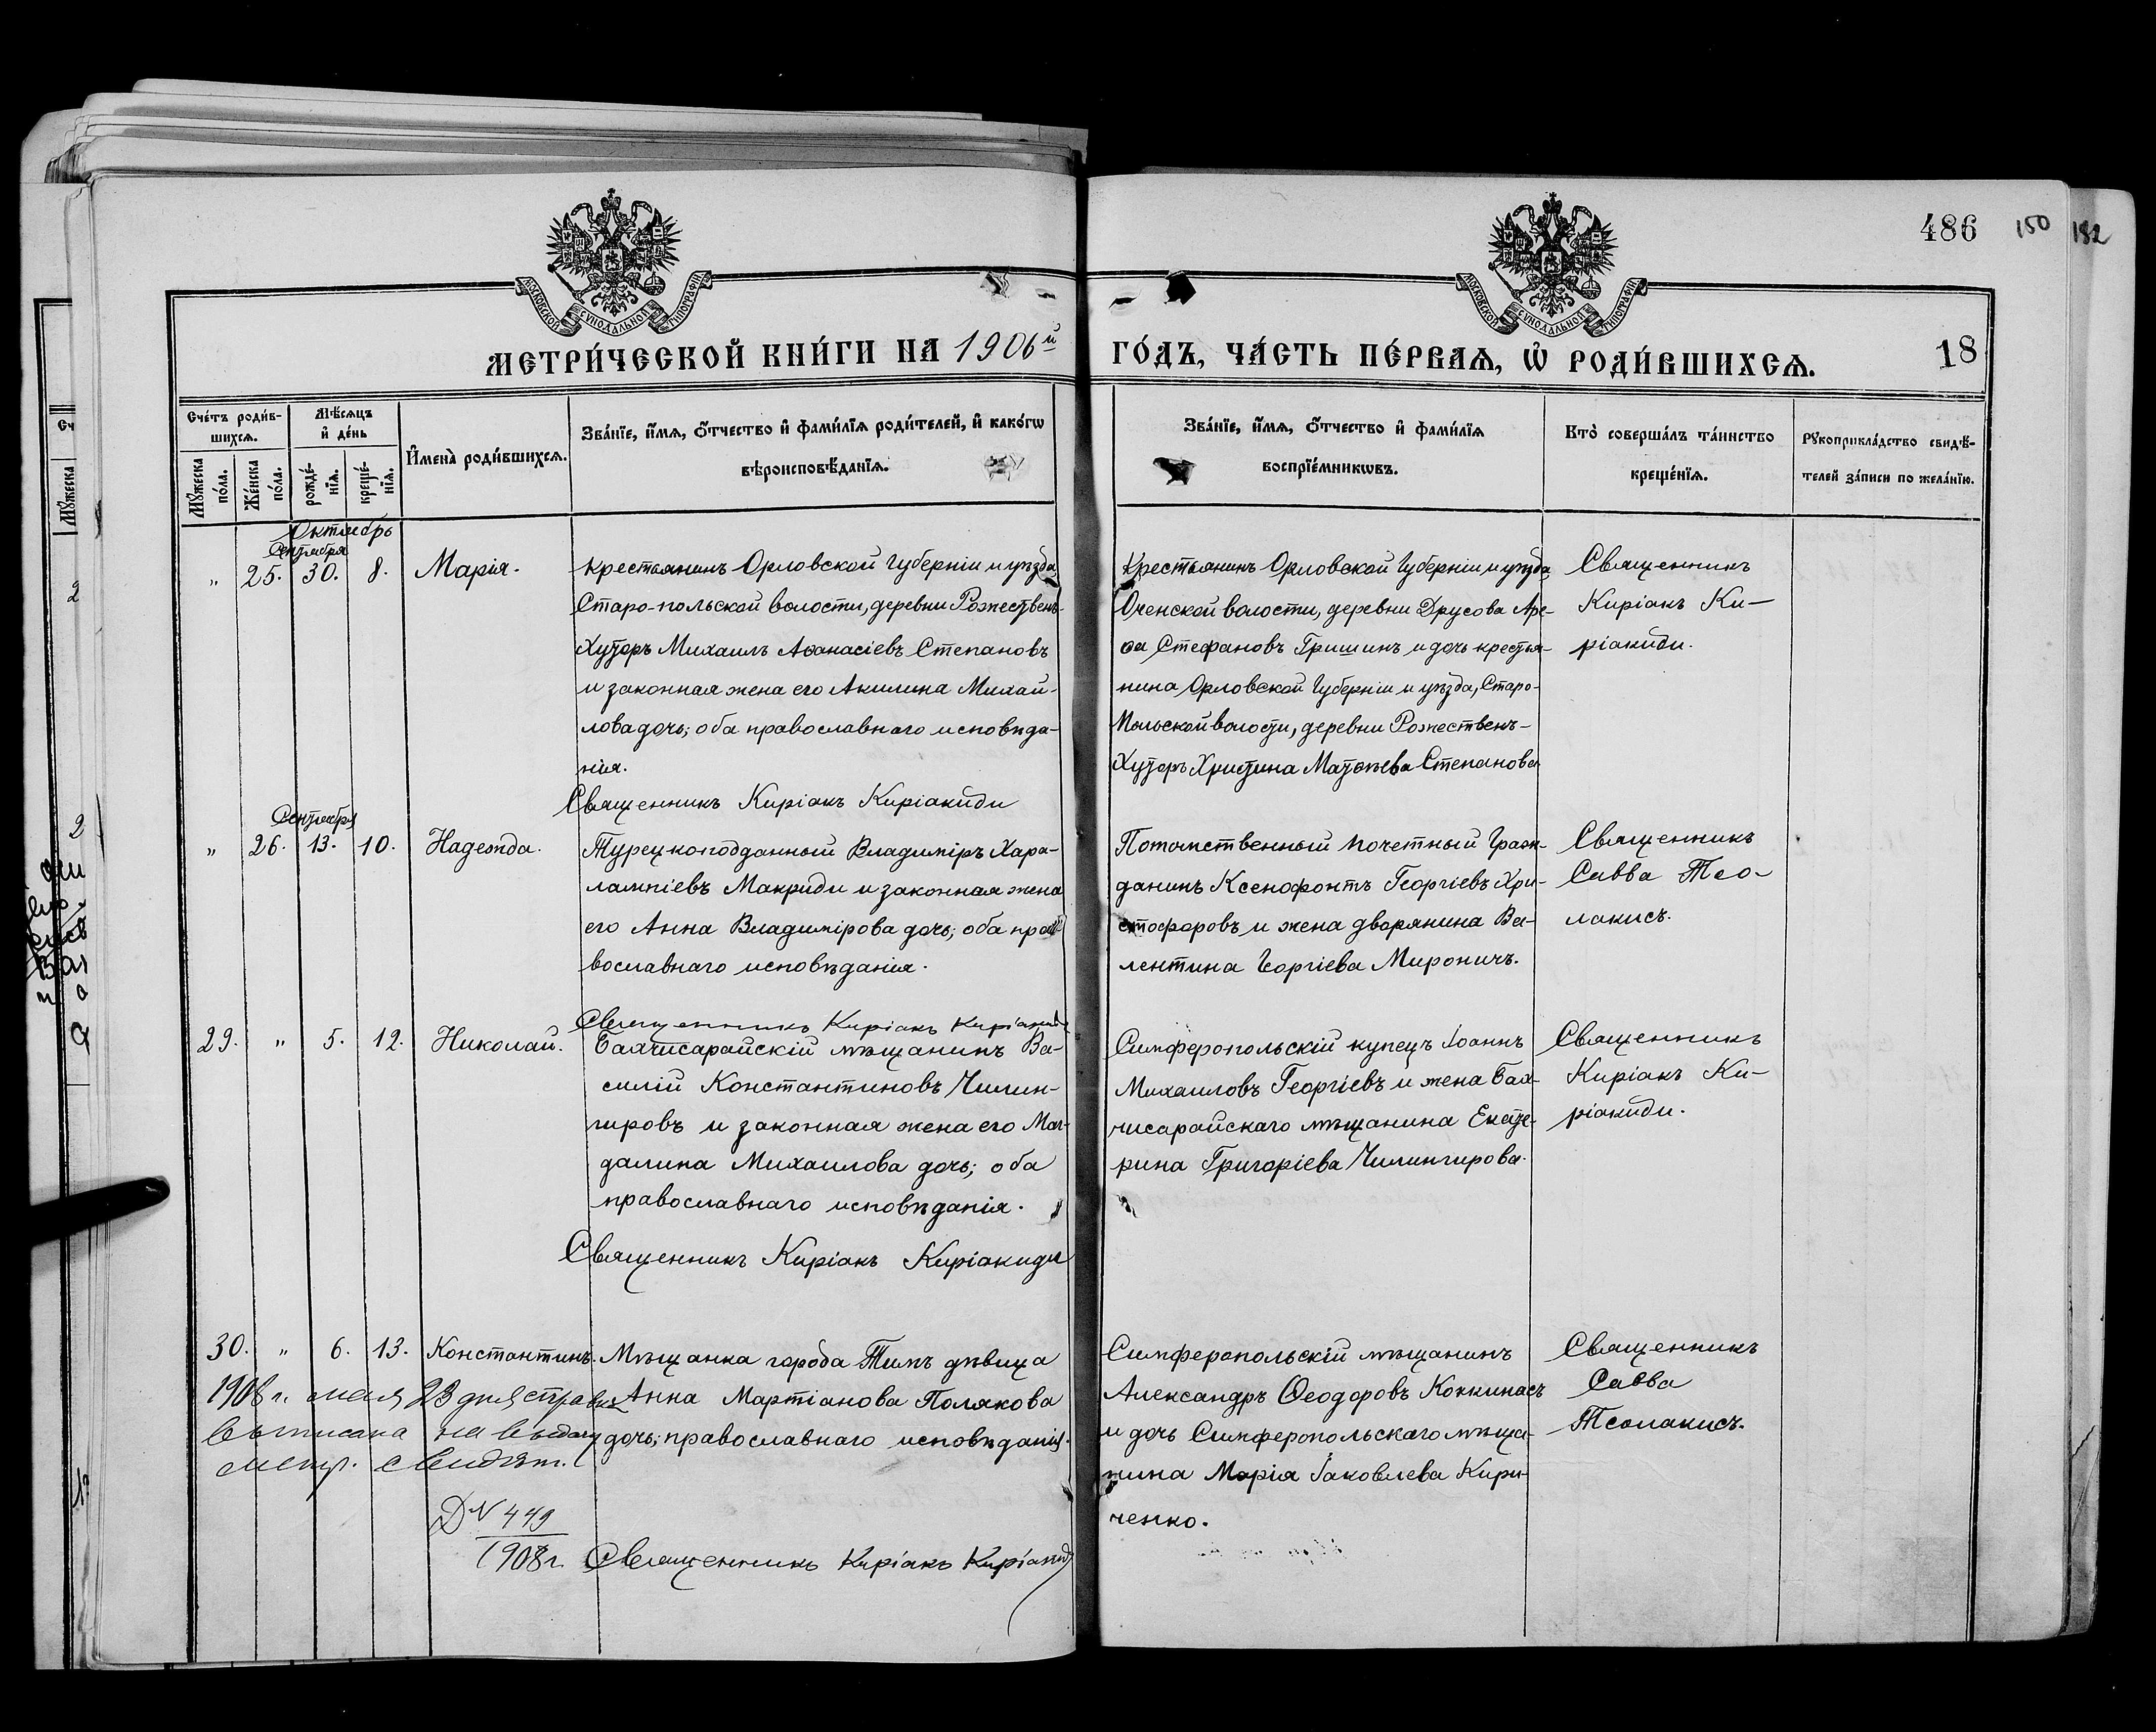 486 150 182
МОСКОВСКОЙ СѴНОДАЛЬНОЙ ТИПОГРАФІИ
МОСКОВСКОЙ СѴНОДАЛЬНОЙ ТИПОГРАФІИ
МЕТРИ́ЧЕСКОЙ КНИ́ГИ НА 1906й ГО́ДЪ, ЧА́СТЬ ПЕ́РВАѦ, Ѡ҆ РОДИ́ВШИХСѦ. 18
Сче́тъ роди́в-
шихсѧ.
Мꙋ́жеска по́ла.
Же́нска по́ла.
Мѣ́сѧцъ и҆ де́нь
рожде́-нїѧ.
креще́-нїѧ.
И҆мена̀ роди́вшихсѧ.
Зва́нїе, и҆́мѧ, ѻ҆́тчество и҆ фами́лїѧ роди́телей, и҆ како́гѡ
вѣроисповѣ́данїѧ.
Зва́нїе, и҆́мѧ, ѻ҆́тчество и҆ фами́лїѧ
воспрїе́мникѡвъ.
Кто̀ соверша́лъ та́инство
креще́нїѧ.
Рꙋкоприкла́дство свидѣ́-
телей за́писи по жела́нїю.
Октябрь
Сентября
" 25. 30. 8. Марія.
Крестьянинъ Орловской Губерніи и уѣзда,
Старо-польской волости, деревни Рожественъ-
Хуторъ Михаилъ Аѳанасіевъ Степановъ
и законная жена его Акилина Михай-
лова дочь; оба православнаго исповѣда-
нія.
Священникъ Киріакъ Киріакиди
Крестьянинъ Орловской Губерніи и уѣзда
волости, деревни Друсова Аре-
ѳа Стефановъ Гришинъ и дочь крестья-
нина Орловской Губерніи и уѣзда, Старо-
волости, деревни Рожественъ-
Хуторъ Христина Матѳѣева Степанова
Священникъ
Киріакъ Ки-
ріакиди.
Сентября
" 26. 13. 10. Надежда.
Турецкоподданный Владиміръ Хара-
лампіевъ Макриди и законная жена
его Анна Владимірова дочь; оба пра-
вославнаго исповѣданія.
Священникъ Киріакъ Киріакиди
Потомственный почетный Граж-
данинъ Ксенофонтъ Георгіевъ Хри-
стофоровъ и жена дворянина Ва-
лентина Георгіева Мироничъ.
Священникъ
Савва Тсо-
лакисъ.
29. " 5. 12. Николай.
Бахчисарайскій мѣщанинъ Ва-
силій Константиновъ Чилин-
гировъ и законная жена его Маг-
далина Михаилова дочь; оба
православнаго исповѣданія.
Священникъ Киріакъ Киріакиди
Симферопольскій купецъ Іоаннъ
Михаиловъ Георгіевъ и жена Бах-
чисарайскаго мѣщанина Екате-
рина Григоріева Чилингирова.
Священникъ
Киріакъ Ки-
ріакиди.
30. " 6. 13. Константинъ.
Мѣщанка города Тимъ дѣвица
Анна Мартіанова Полякова
дочь; православнаго исповѣданія.
1908 г. мая 23 дня справка
выписана на выдачу
метр. свидѣт.
Д N 449
1908 г.
Священникъ Киріакъ Киріакиди
Симферопольскій мѣщанинъ
Александръ Ѳеодоровъ Коккинасъ
и дочь Симферопольскаго мѣща-
нина Марія Іаковлева Кири-
ченко.
Священникъ
Савва
Тсолакисъ.